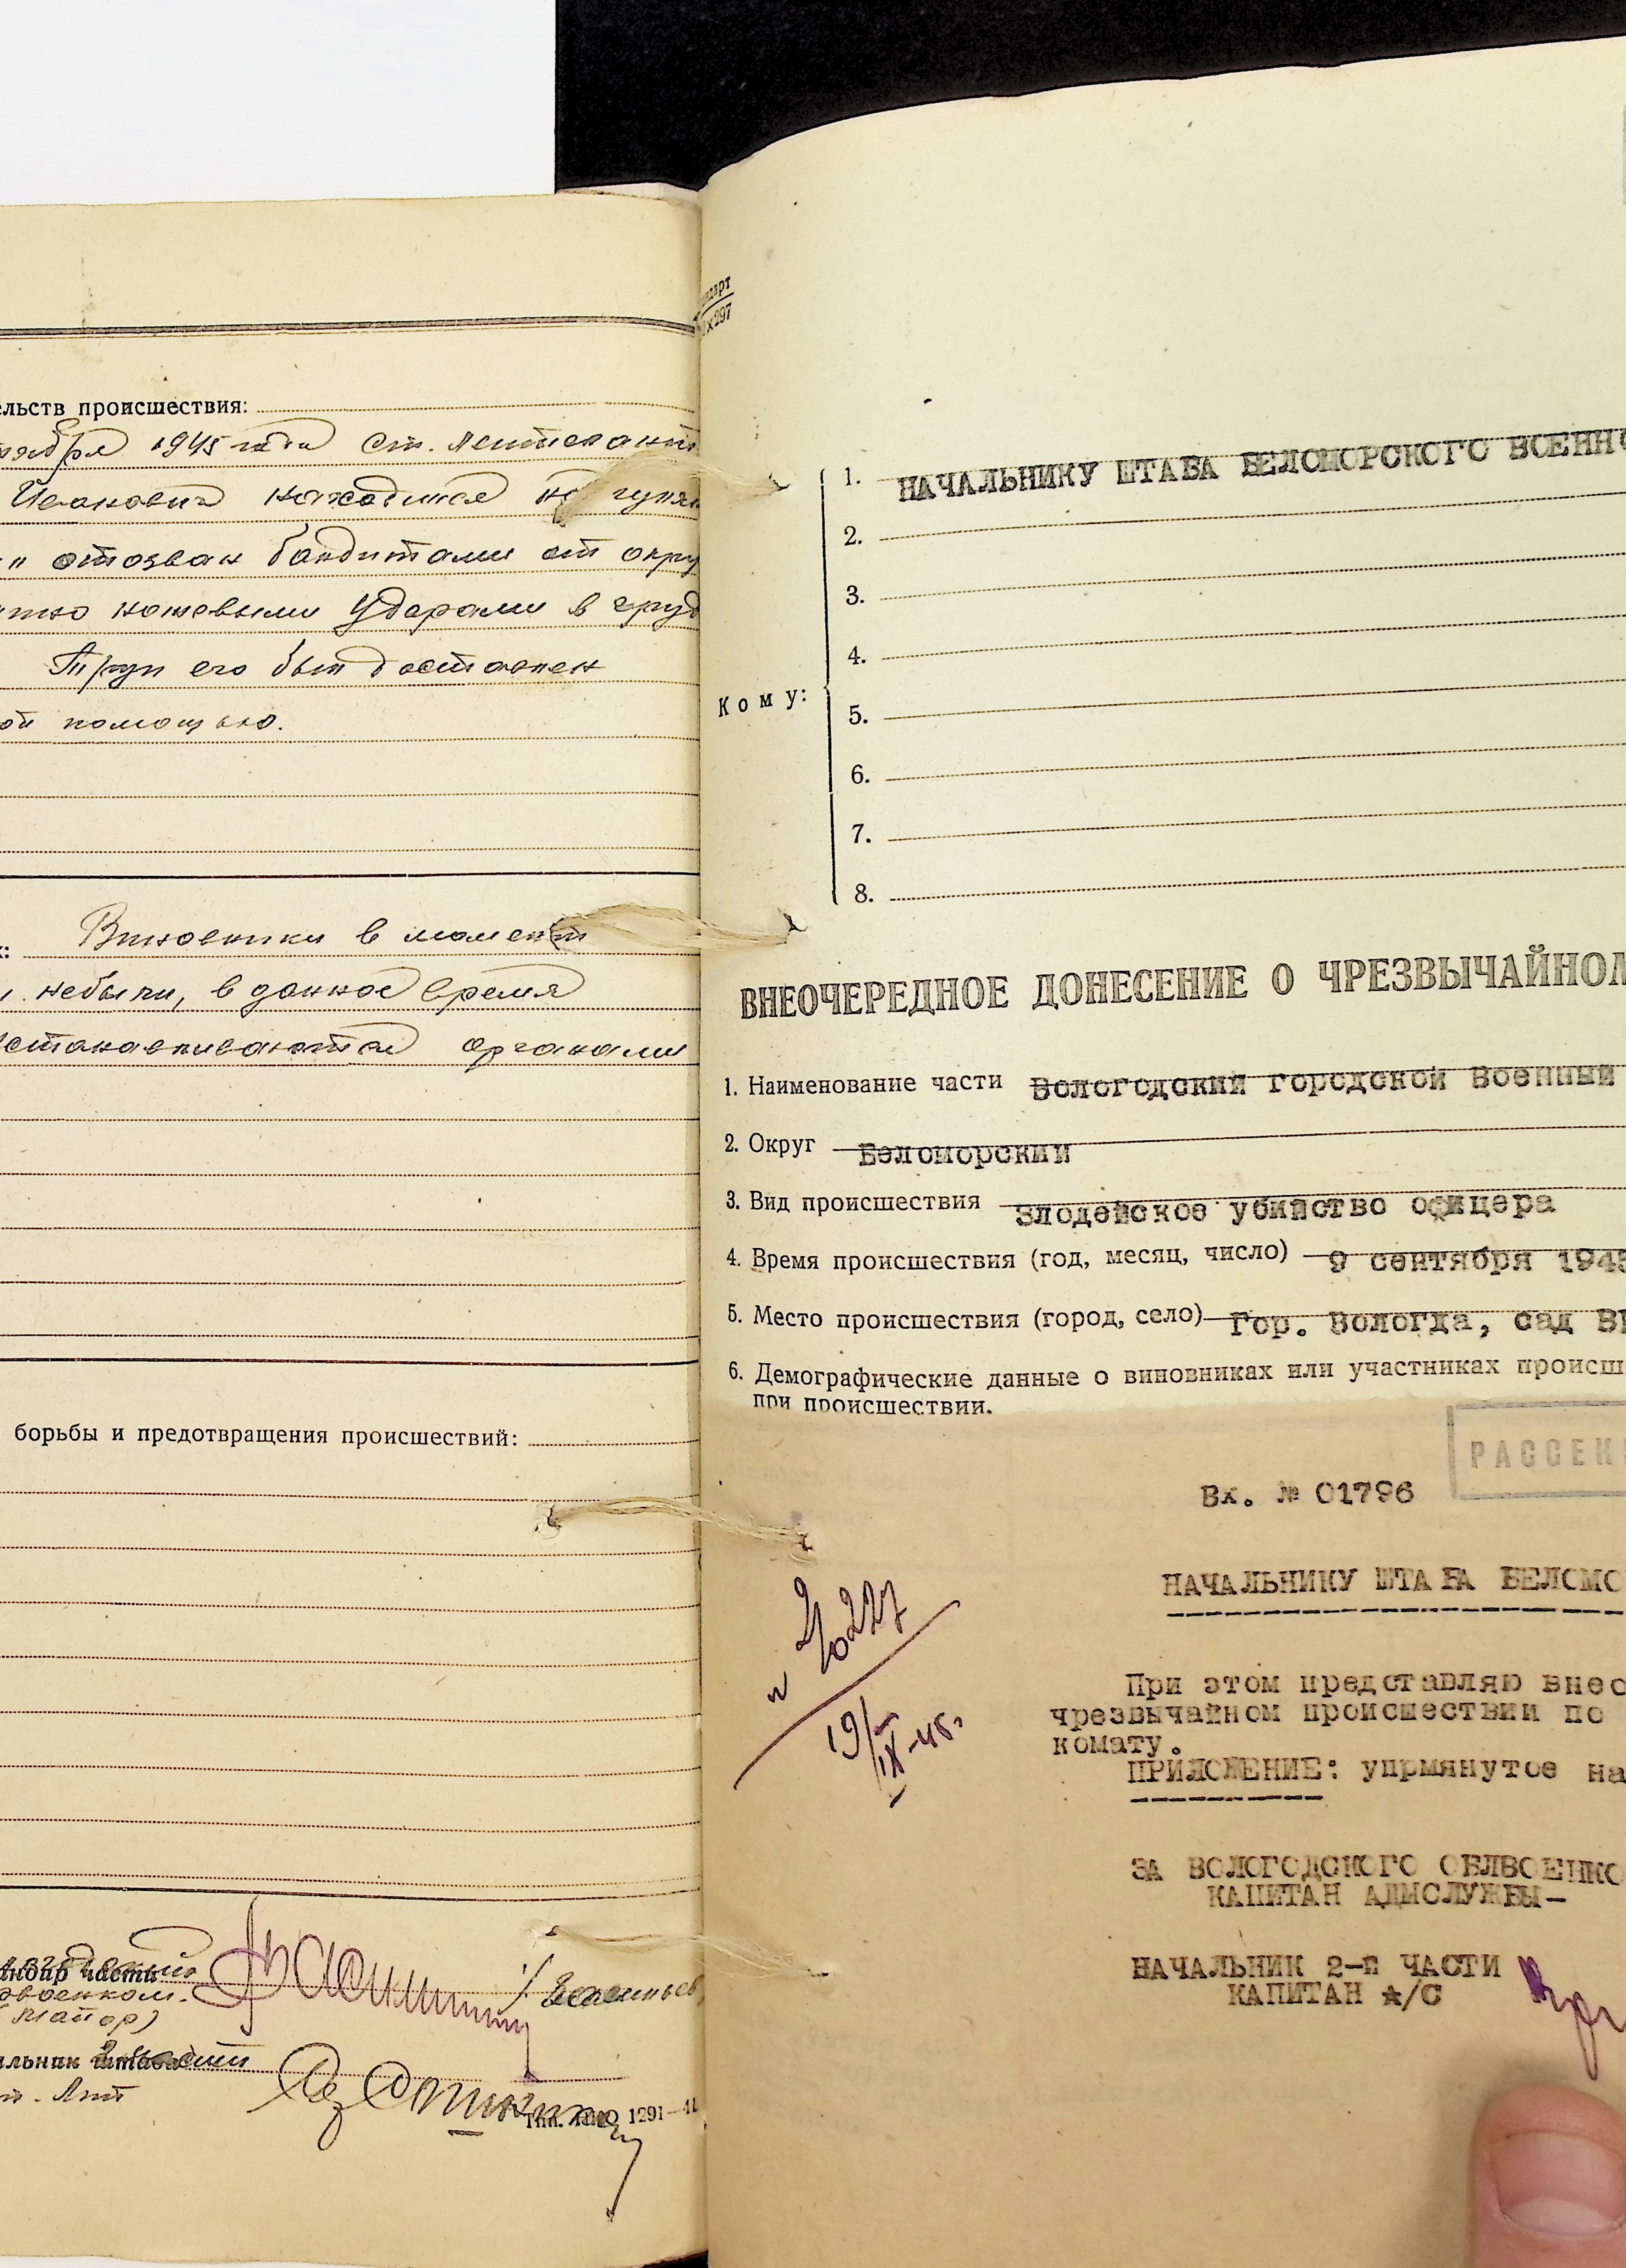 ельств происшествия:
тября 1945 года ст. лейтенант
Иванович находился на гулян
" отозван бандитами от окру
ножевыми ударами в груд
Труп его был доставлен
ой помощью.
к: Виновники в момент
небыли, в данное время
устанавливаются органами
борьбы и предотвращения происшествий:
андир части
двоенком.
(майор)
альник штаба
Тип. 1291—44
ндарт
х297
Кому:
1. НАЧАЛЬНИКУ ШТАБА БЕЛОМОРСКОГО ВОЕННО
2.
3.
4.
5.
6.
7.
8.
ВНЕОЧЕРЕДНОЕ ДОНЕСЕНИЕ О ЧРЕЗВЫЧАЙНОМ
1. Наименование части Вологодский городской военный
2. Округ Беломорский
3. Вид происшествия Злодейское убийство офицера
4. Время происшествия (год, месяц, число) 9 сентября 1945
5. Место происшествия (город, село) Гор. Вологда, сад В
6. Демографические данные о виновниках или участниках происш
при происшествии.
РАССЕК
Вх. № 01796
НАЧАЛЬНИКУ ШТАБА БЕЛОМО
При этом представляю внео
чрезвычайном происшествии по
комату.
ПРИЛОЖЕНИЕ: упрмянутое на
19/IX-45г.
ЗА ВОЛОГОДСКОГО ОБЛВОЕНКО
КАПИТАН АДМСЛУЖБЫ-
НАЧАЛЬНИК 2-Й ЧАСТИ
КАПИТАН А/С